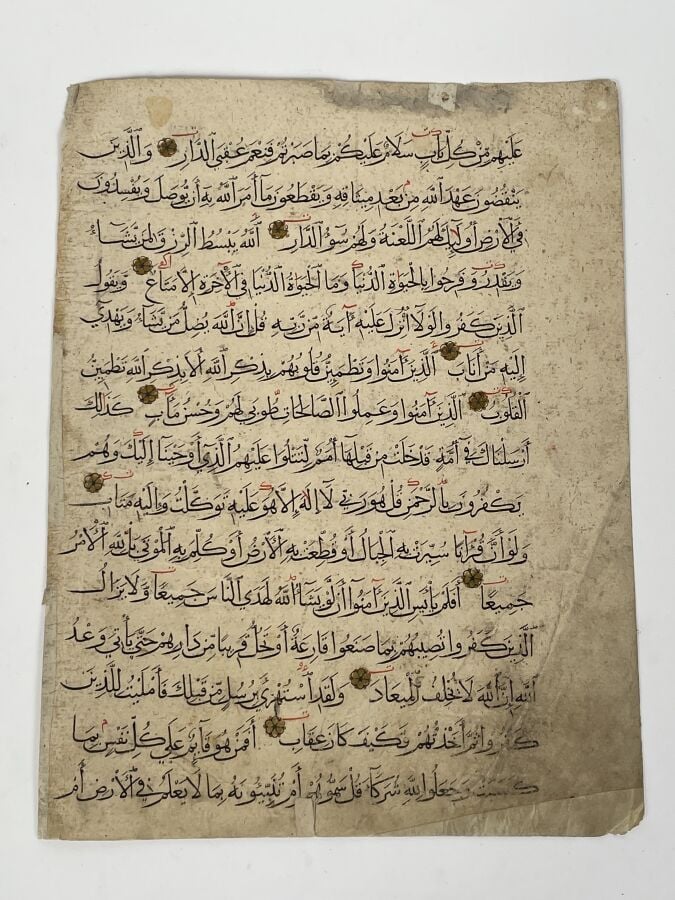 عَلَيْهِم مِّن كُلِّ بَابٍ سَلَامٌ عَلَيْكُم بِمَا صَبَرْتُمْ فَنِعْمَ عُقْبَى ٱلدَّارِ وَٱلَّذِينَ
يَنقُضُونَ عَهْدَ ٱللَّهِ مِن بَعْدِ مِيثَاقِهِ وَيَقْطَعُونَ مَا أَمَرَ ٱللَّهُ بِهِ أَن يُوصَلَ وَيُفْسِدُونَ
فِي ٱلْأَرْضِ أُولَٰئِكَ لَهُمُ ٱللَّعْنَةُ وَلَهُمْ سُوءُ ٱلدَّارِ ٱللَّهُ يَبْسُطُ ٱلرِّزْقَ لِمَن يَشَاءُ
وَيَقْدِرُ وَفَرِحُوا بِٱلْحَيَاةِ ٱلدُّنْيَا وَمَا ٱلْحَيَاةُ ٱلدُّنْيَا فِي ٱلْآخِرَةِ إِلَّا مَتَاعٌ وَيَقُولُ
ٱلَّذِينَ كَفَرُوا لَوْلَا أُنزِلَ عَلَيْهِ آيَةٌ مِّن رَّبِّهِ قُلْ إِنَّ ٱللَّهَ يُضِلُّ مَن يَشَاءُ وَيَهْدِي
إِلَيْهِ مَنْ أَنَابَ ٱلَّذِينَ آمَنُوا وَتَطْمَئِنُّ قُلُوبُهُم بِذِكْرِ ٱللَّهِ أَلَا بِذِكْرِ ٱللَّهِ تَطْمَئِنُّ
ٱلْقُلُوبُ ٱلَّذِينَ آمَنُوا وَعَمِلُوا ٱلصَّالِحَاتِ طُوبَى لَهُمْ وَحُسْنُ مَآبٍ كَذَٰلِكَ
أَرْسَلْنَاكَ فِي أُمَّةٍ قَدْ خَلَتْ مِن قَبْلِهَا أُمَمٌ لِّتَتْلُوَا عَلَيْهِمُ ٱلَّذِي أَوْحَيْنَا إِلَيْكَ وَهُمْ
يَكْفُرُونَ بِٱلرَّحْمَٰنِ قُلْ هُوَ رَبِّي لَا إِلَٰهَ إِلَّا هُوَ عَلَيْهِ تَوَكَّلْتُ وَإِلَيْهِ مَتَابِ
وَلَوْ أَنَّ قُرْآنًا سُيِّرَتْ بِهِ ٱلْجِبَالُ أَوْ قُطِّعَتْ بِهِ ٱلْأَرْضُ أَوْ كُلِّمَ بِهِ ٱلْمَوْتَى بَل لِّلَّهِ ٱلْأَمْرُ
جَمِيعًا أَفَلَمْ يَايْئَسِ ٱلَّذِينَ آمَنُوا أَن لَّوْ يَشَاءُ ٱللَّهُ لَهَدَى ٱلنَّاسَ جَمِيعًا وَلَا يَزَالُ
ٱلَّذِينَ كَفَرُوا تُصِيبُهُم بِمَا صَنَعُوا قَارِعَةٌ أَوْ تَحُلُّ قَرِيبًا مِّن دَارِهِمْ حَتَّى يَأْتِيَ وَعْدُ
ٱللَّهِ إِنَّ ٱللَّهَ لَا يُخْلِفُ ٱلْمِيعَادَ وَلَقَدِ ٱسْتُهْزِئَ بِرُسُلٍ مِّن قَبْلِكَ فَأَمْلَيْتُ لِلَّذِينَ
كَفَرُوا ثُمَّ أَخَذْتُهُمْ فَكَيْفَ كَانَ عِقَابِ أَفَمَنْ هُوَ قَائِمٌ عَلَى كُلِّ نَفْسٍ بِمَا
كَسَبَتْ وَجَعَلُوا لِلَّهِ شُرَكَاءَ قُلْ سَمُّوهُمْ أَمْ تُنَبِّئُونَهُ بِمَا لَا يَعْلَمُ فِي ٱلْأَرْضِ أَم